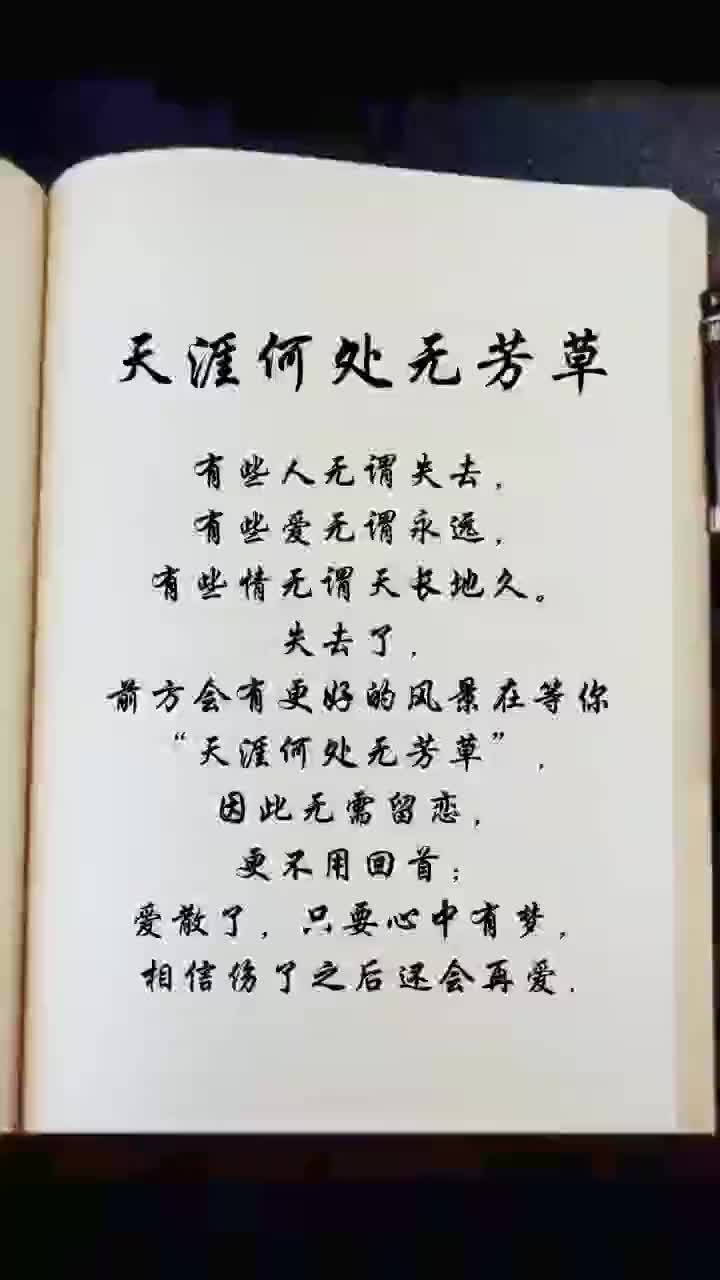 天涯何处无芳草
有些人无谓失去，
有些爱无谓永远，
有些情无谓天长地久。
失去了，
前方会有更好的风景在等你
“天涯何处无芳草”，
因此无需留恋，
更不用回首；
爱散了，只要心中有梦，
相信伤了之后还会再爱．